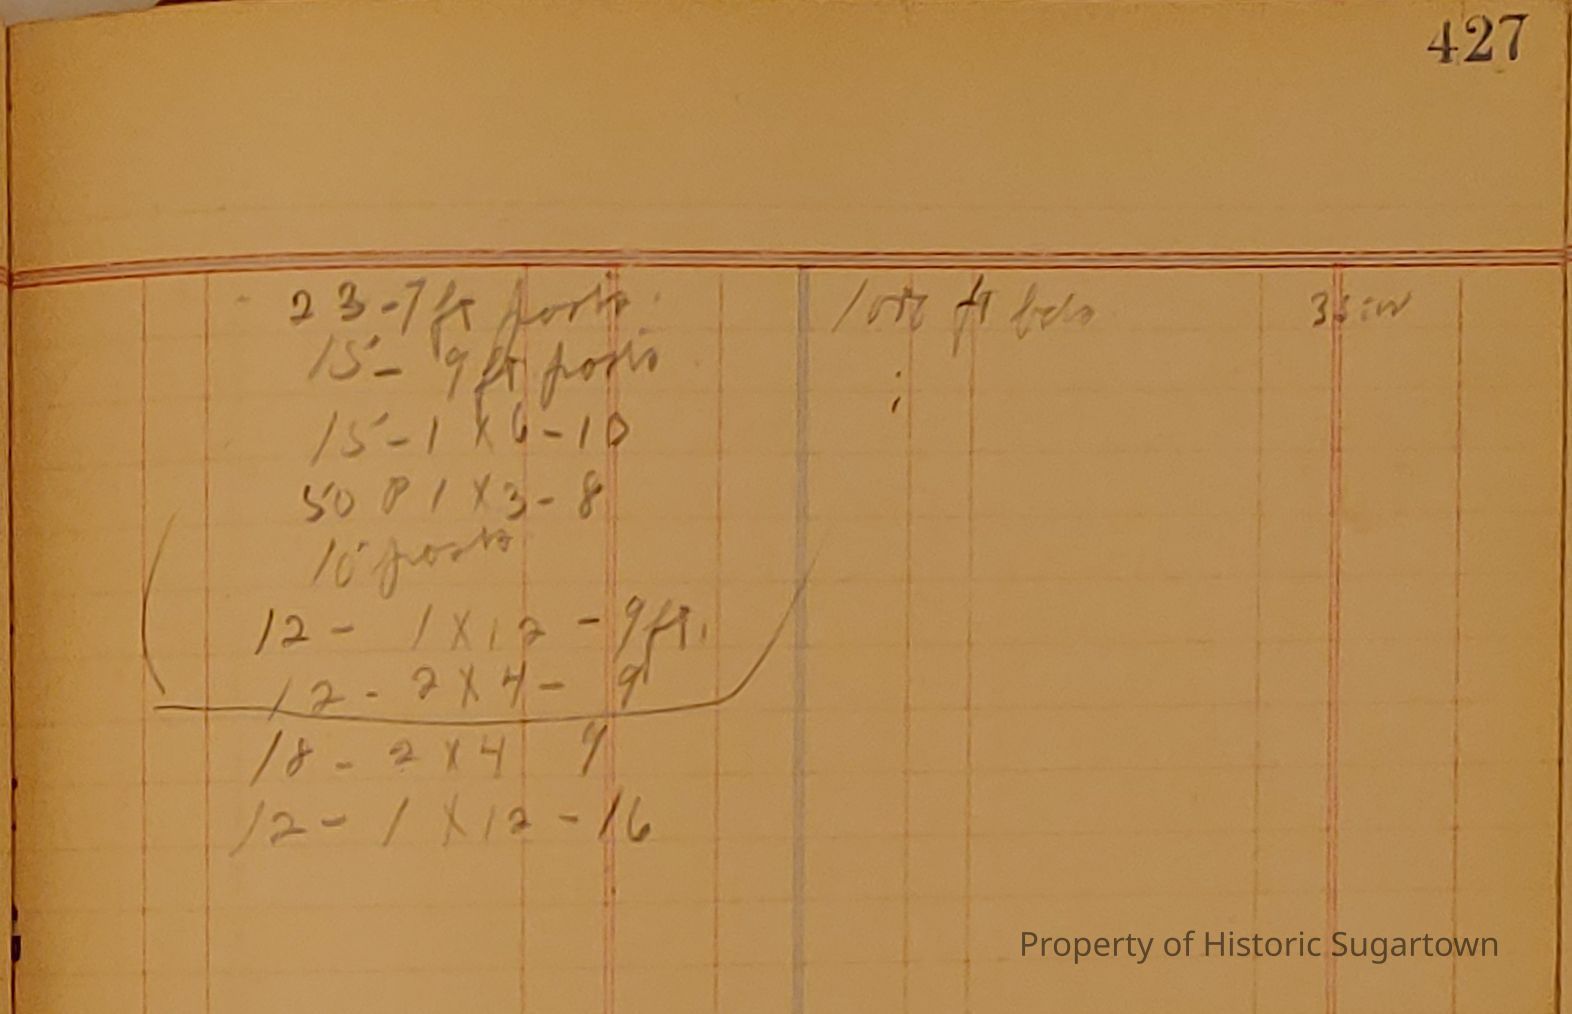 427
23-7 ft posts
15- 9 ft posts
15-1 X 6-10
50 P 1 X 3- 8
posts
12- 1 X 12 - 9 ft.
12- 2 X 4- 9
18- 2 X 4 9
12- 1 X 12 -16
ft
Property of Historic Sugartown